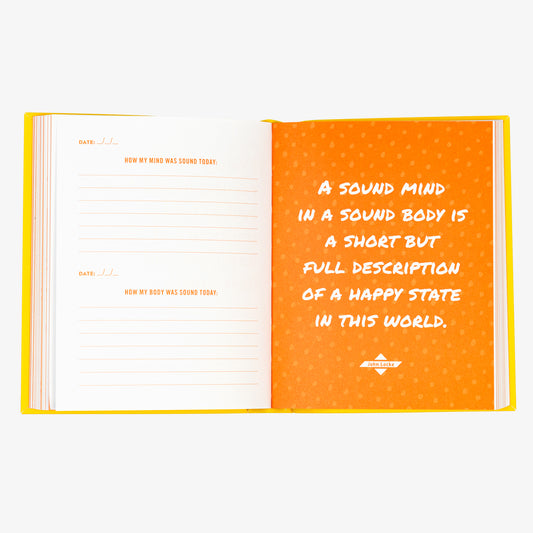 DATE: _/_/_
HOW MY MIND WAS SOUND TODAY:
DATE: _/_/_
HOW MY BODY WAS SOUND TODAY:
A SOUND MIND
IN A SOUND BODY IS
A SHORT BUT
FULL DESCRIPTION
OF A HAPPY STATE
IN THIS WORLD.
John Locke